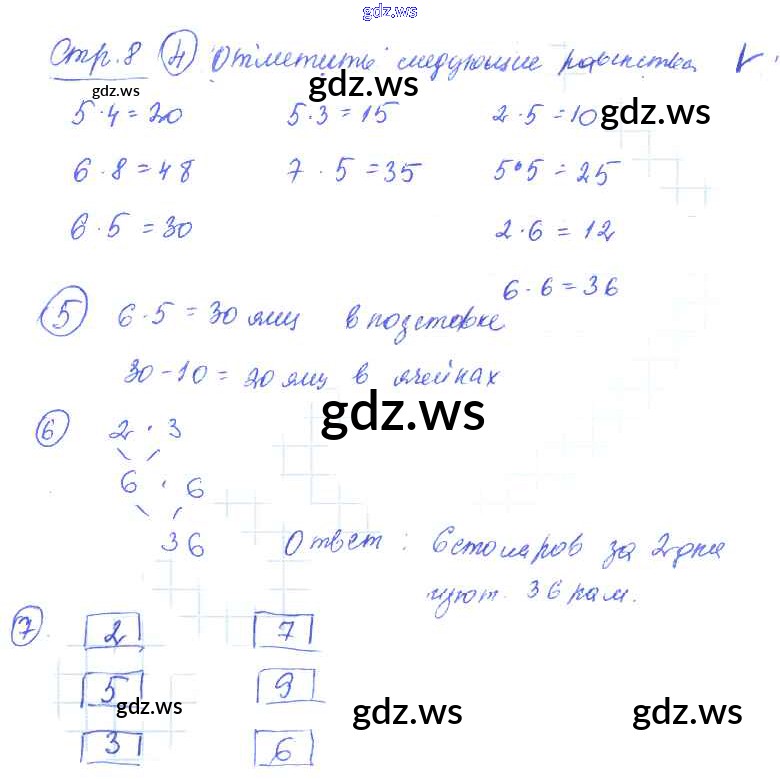 gdz.ws
Стр. 8 4 Отметить следующие равенства V
gdz.ws gdz.ws gdz.ws
5·4=20 5·3=15 2·5=10
6·8=48 7·5=35 5·5=25
6·5=30 2·6=12
6·6=36
5 6·5=30 яиц в подставке
30-10=20 яиц в ячейках
gdz.ws
6 2·3
6·6
36 Ответ: 6 столяров за 2 дня
36 рам.
7 2 7
5 9
gdz.ws gdz.ws gdz.ws
3 6